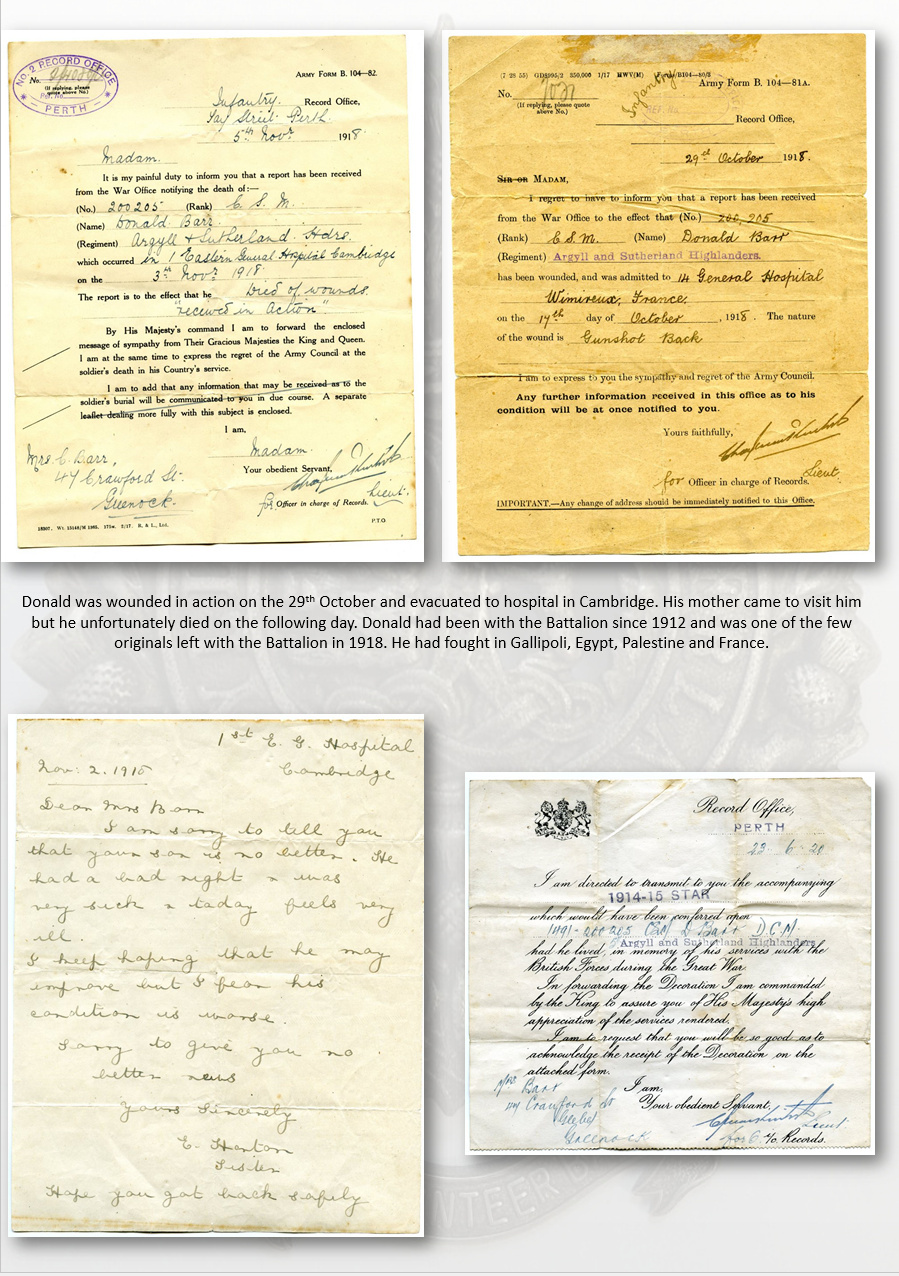 NO. 2 RECORD OFFICE
PERTH
No.
(If replying, please
quote above No.)
ARMY FORM B. 104—82.
Infantry. Record Office,
Hay Street Perth.
5th Novr 1918.
Madam.
It is my painful duty to inform you that a report has been received
from the War Office notifying the death of:—
(No.) 200205 (Rank) C. S. M.
(Name) Donald Barr
(Regiment) Argyll & Sutherland Hdrs.
which occurred in 1 Eastern General Hospital Cambridge
on the 3rd Novr 1918.
The report is to the effect that he Died of wounds
"received in Action"
By His Majesty's command I am to forward the enclosed
message of sympathy from Their Gracious Majesties the King and Queen.
I am at the same time to express the regret of the Army Council at the
soldier's death in his Country's service.
I am to add that any information that may be received as to the
soldier's burial will be communicated to you in due course. A separate
leaflet dealing more fully with this subject is enclosed.
I am,
Madam.
Your obedient Servant,
Lieut.
for Officer in charge of Records.
Mrs C. Barr,
47 Crawford St.
Greenock.
P.T.O
No.
(If replying, please quote
above No.)
Infantry
Army Form B. 104—81A.
Record Office,
29th October 1918.
SIR OR MADAM,
I regret to have to inform you that a report has been received
from the War Office to the effect that (No.) 200,205
(Rank) C.S.M. (Name) Donald Barr
(Regiment) Argyll and Sutherland Highlanders.
has been wounded, and was admitted to 14 General Hospital
Wimireux, France,
on the 17th day of October, 1918. The nature
of the wound is Gunshot Back
I am to express to you the sympathy and regret of the Army Council.
Any further information received in this office as to his
condition will be at once notified to you.
Yours faithfully,
Lieut.
for Officer in charge of Records.
IMPORTANT.—Any change of address should be immediately notified to this Office.
Donald was wounded in action on the 29th October and evacuated to hospital in Cambridge. His mother came to visit him
but he unfortunately died on the following day. Donald had been with the Battalion since 1912 and was one of the few
originals left with the Battalion in 1918. He had fought in Gallipoli, Egypt, Palestine and France.
1st E. G. Hospital
Cambridge
Nov: 2. 1918
Dear Mrs Barr
I am sorry to tell you
that your son is no better. He
had a bad night & was
very sick & today feels very
ill.
I keep hoping that he may
improve but I fear his
condition is worse.
Sorry to give you no
better news
Yours Sincerely
Sister
Hope you got back safely
Record Office,
PERTH
23. 6. 20
I am directed to transmit to you the accompanying
1914-15 STAR
which would have been conferred upon
1491-200205 CSM D Barr D.C.M.
5 Argyll and Sutherland Highlanders
had he lived, in memory of his services with the
British Forces during the Great War.
In forwarding the Decoration I am commanded
by the King to assure you of His Majesty's high
appreciation of the services rendered.
I am to request that you will be so good as to
acknowledge the receipt of the Decoration on the
attached form.
I am,
Your obedient Servant,
Lieut
for O. i/c. Records.
Mrs Barr
Crawford St
Greenock